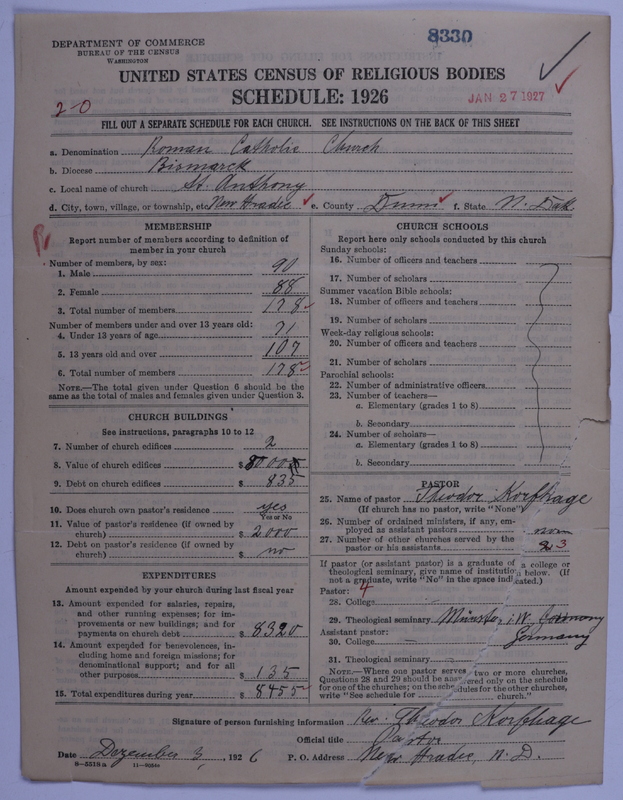 8330
DEPARTMENT OF COMMERCE
BUREAU OF THE CENSUS
WASHINGTON
UNITED STATES CENSUS OF RELIGIOUS BODIES
SCHEDULE: 1926
2-0
JAN 27 1927
FILL OUT A SEPARATE SCHEDULE FOR EACH CHURCH. SEE INSTRUCTIONS ON THE BACK OF THIS SHEET
a. Denomination Roman Catholic Church
b. Diocese Bismarck
c. Local name of church St. Anthony
d. City, town, village, or township, etc. New Hradec e. County Dunn f. State N. Dak
MEMBERSHIP
Report number of members according to definition of
member in your church
Number of members, by sex:
1. Male 90
2. Female 88
3. Total number of members 178
Number of members under and over 13 years old:
4. Under 13 years of age 71
5. 13 years old and over 107
6. Total number of members 178
NOTE.—The total given under Question 6 should be
same as the total of males and females given under Question 3.
CHURCH BUILDINGS
See instructions, paragraphs 10 to 12
7. Number of church edifices 2
8. Value of church edifices $
9. Debt on church edifices $ 835
10. Does church own pastor's residence yes
Yes or No
11. Value of pastor's residence (if owned by
church) $ 2000
12. Debt on pastor's residence (if owned by
church) $ no
EXPENDITURES
Amount expended by your church during last fiscal year
13. Amount expended for salaries, repairs,
and other running expenses; for im-
provements or new buildings; and for
payments on church debt $ 8320
14. Amount expended for benevolences, in-
cluding home and foreign missions; for
denominational support; and for all
other purposes $ 135
15. Total expenditures during year $ 8455
CHURCH SCHOOLS
Report here only schools conducted by this church
Sunday schools:
16. Number of officers and teachers
17. Number of scholars
Summer vacation Bible schools:
18. Number of officers and teachers
19. Number of scholars
Week-day religious schools:
20. Number of officers and teachers
21. Number of scholars
Parochial schools:
22. Number of administrative officers
23. Number of teachers—
a. Elementary (grades 1 to 8)
b. Secondary
24. Number of scholars—
a. Elementary (grades 1 to 8)
b. Secondary
PASTOR
25. Name of pastor Theodor Korfhage
(If church has no pastor, write "None")
26. Number of ordained ministers, if any, em-
ployed as assistant pastors
27. Number of other churches served by the
pastor or his assistants 3
If pastor (or assistant pastor) is a graduate of a college or
theological seminary, give name of institution below. (If
not a graduate, write "No" in the space indicated.)
Pastor: 4
28. College
29. Theological seminary Münster i. W. Germany
Assistant pastor: Germany
30. College
31. Theological seminary
NOTE.—Where one pastor serves two or more churches,
Questions 28 and 29 should be answered only on the schedule
for one of the churches; on the schedules for the other churches,
write "See schedule for church."
Signature of person furnishing information Rev. Theodor Korfhage
Official title Pastor
Date Dezember 3, 1926 P. O. Address New Hradec, N. D.
8-5518a 11-9084